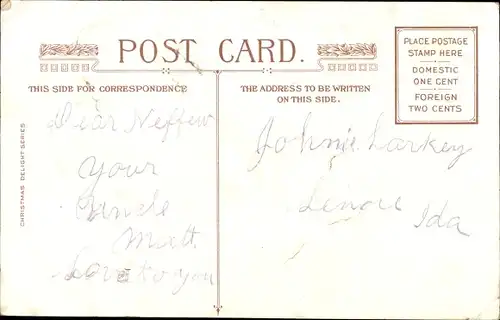 POST CARD.
THIS SIDE FOR CORRESPONDENCE
THE ADDRESS TO BE WRITTEN
ON THIS SIDE.
PLACE POSTAGE
STAMP HERE
DOMESTIC
ONE CENT
FOREIGN
TWO CENTS
CHRISTMAS DELIGHT SERIES
Dear Neffew
your
Uncle
Matt
Love to you
Johnie Larkey
Lenore Ida